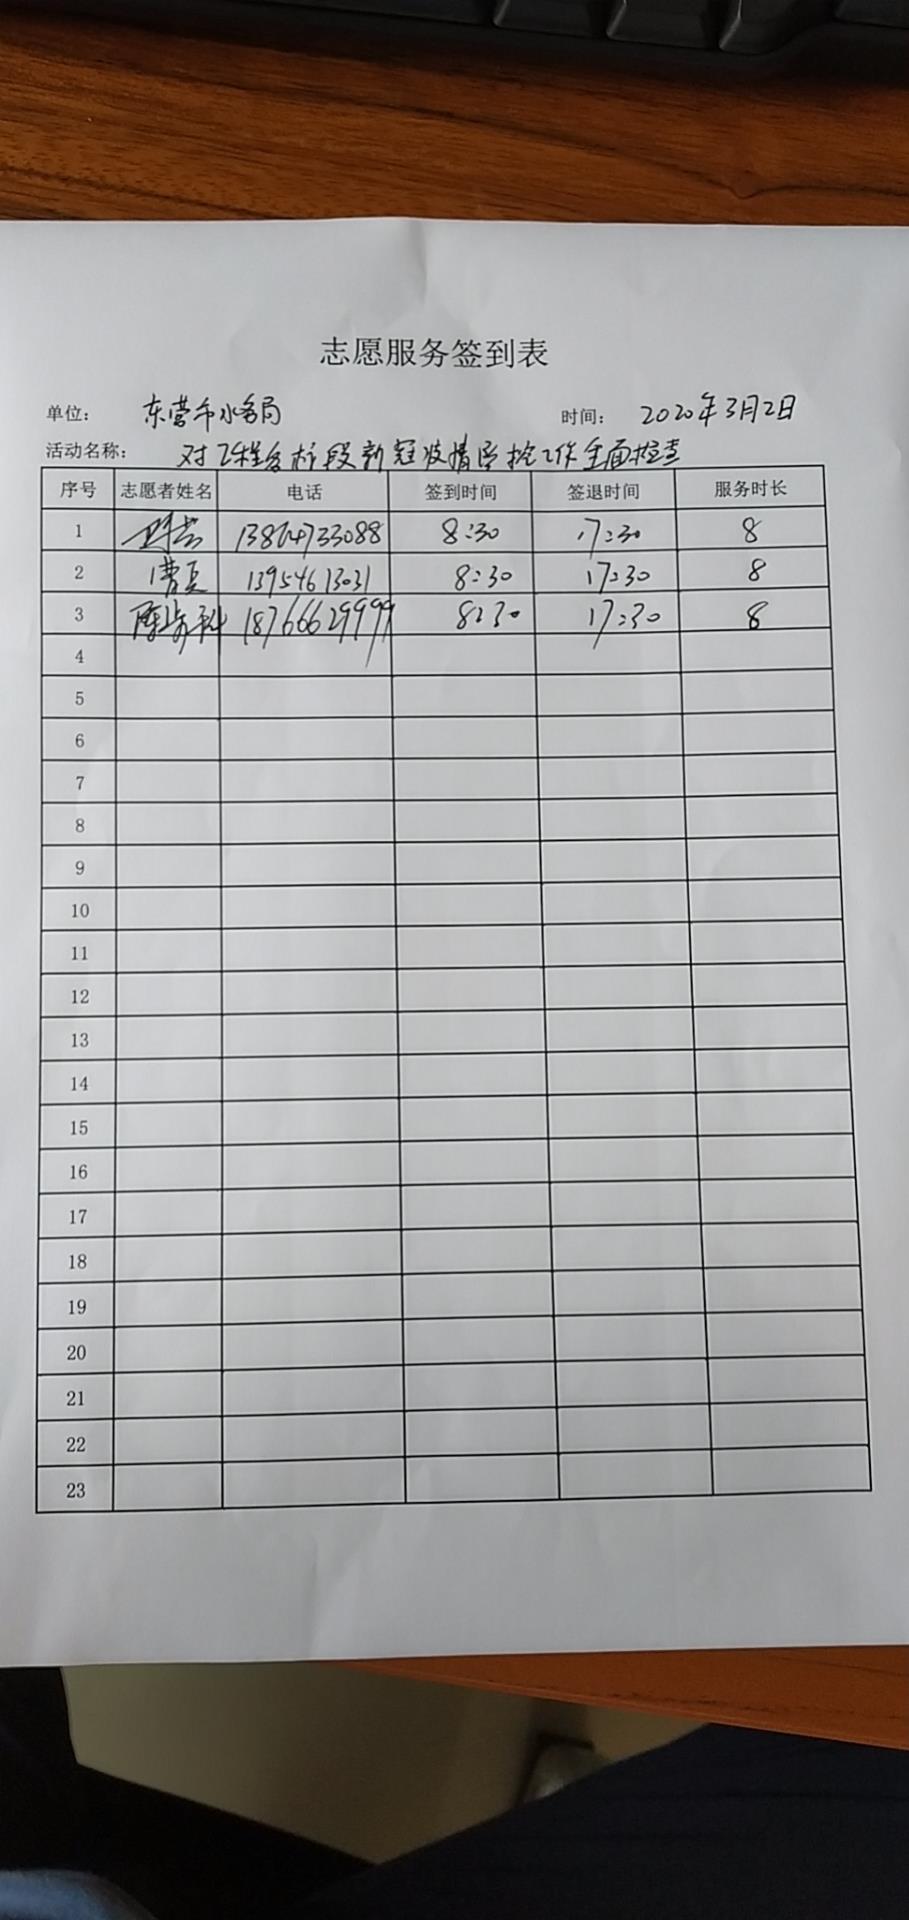 志愿服务签到表
单位: 东营市水务局 时间: 2020年3月2日
活动名称: 对工程各标段新冠疫情防控工作全面检查
序号 志愿者姓名 电话 签到时间 签退时间 服务时长
1 13864733088 8:30 17:30 8
2 曹夏 13954613031 8:30 17:30 8
3 18766629999 8:30 17:30 8
4
5
6
7
8
9
10
11
12
13
14
15
16
17
18
19
20
21
22
23